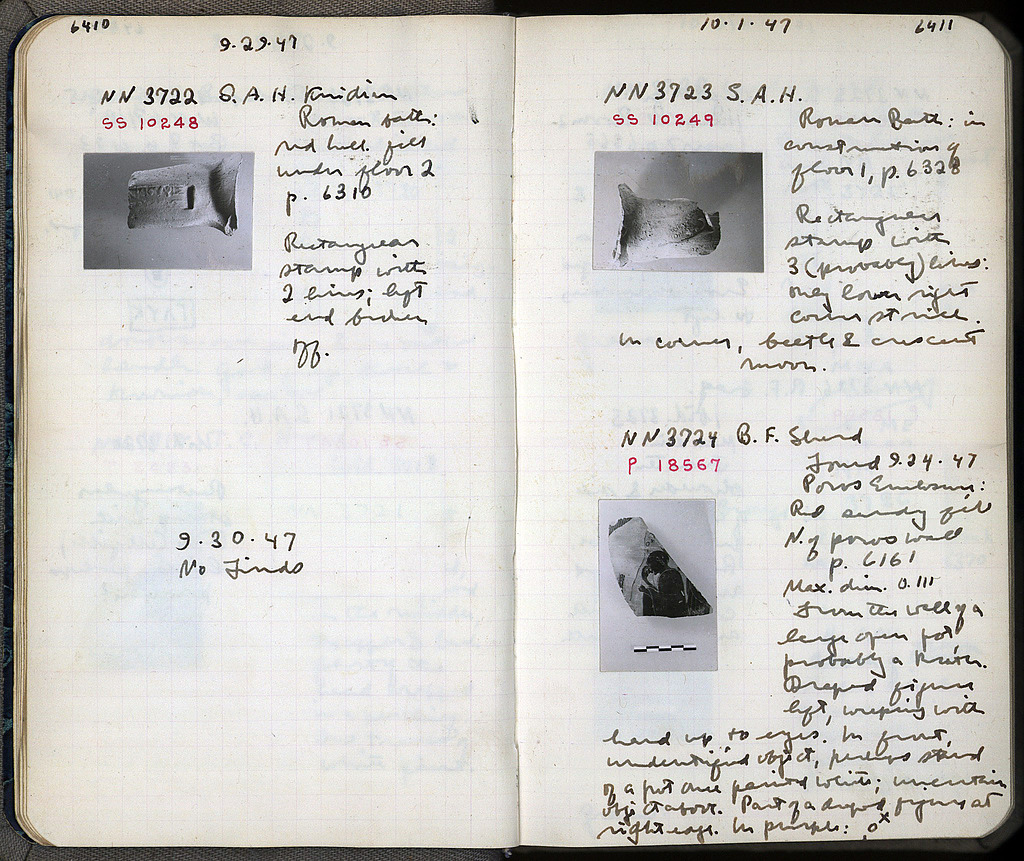 6410
9.29.47
NN 3722 S.A.H. Knidian
SS 10248
Roman bath:
red hill. fill
under floor 2
p. 6310
Rectangular
stamp with
2 lines; left
end broken
off.
9.30.47
No Finds
10.1.47
6411
NN 3723 S.A.H.
SS 10249
Roman Bath: in
construction of
floor 1, p. 6328
Rectangular
stamp with
3 (probably) lines:
only lower right
corner struck.
In corner, beetle & crescent
moon.
NN 3724 B.F. Sherd
P 18567
Found 9.24.47
Poros Enclosure:
Red sandy fill
N. of poros wall
p. 6161
Max. dim. 0.111
From the wall of a
large open pot
probably a krater.
Draped figure
left, weeping with
hand up to eyes. In front,
unidentified object, perhaps stand
of a pot once painted white; uncertain
object above. Part of a draped figure at
right edge. In purple: